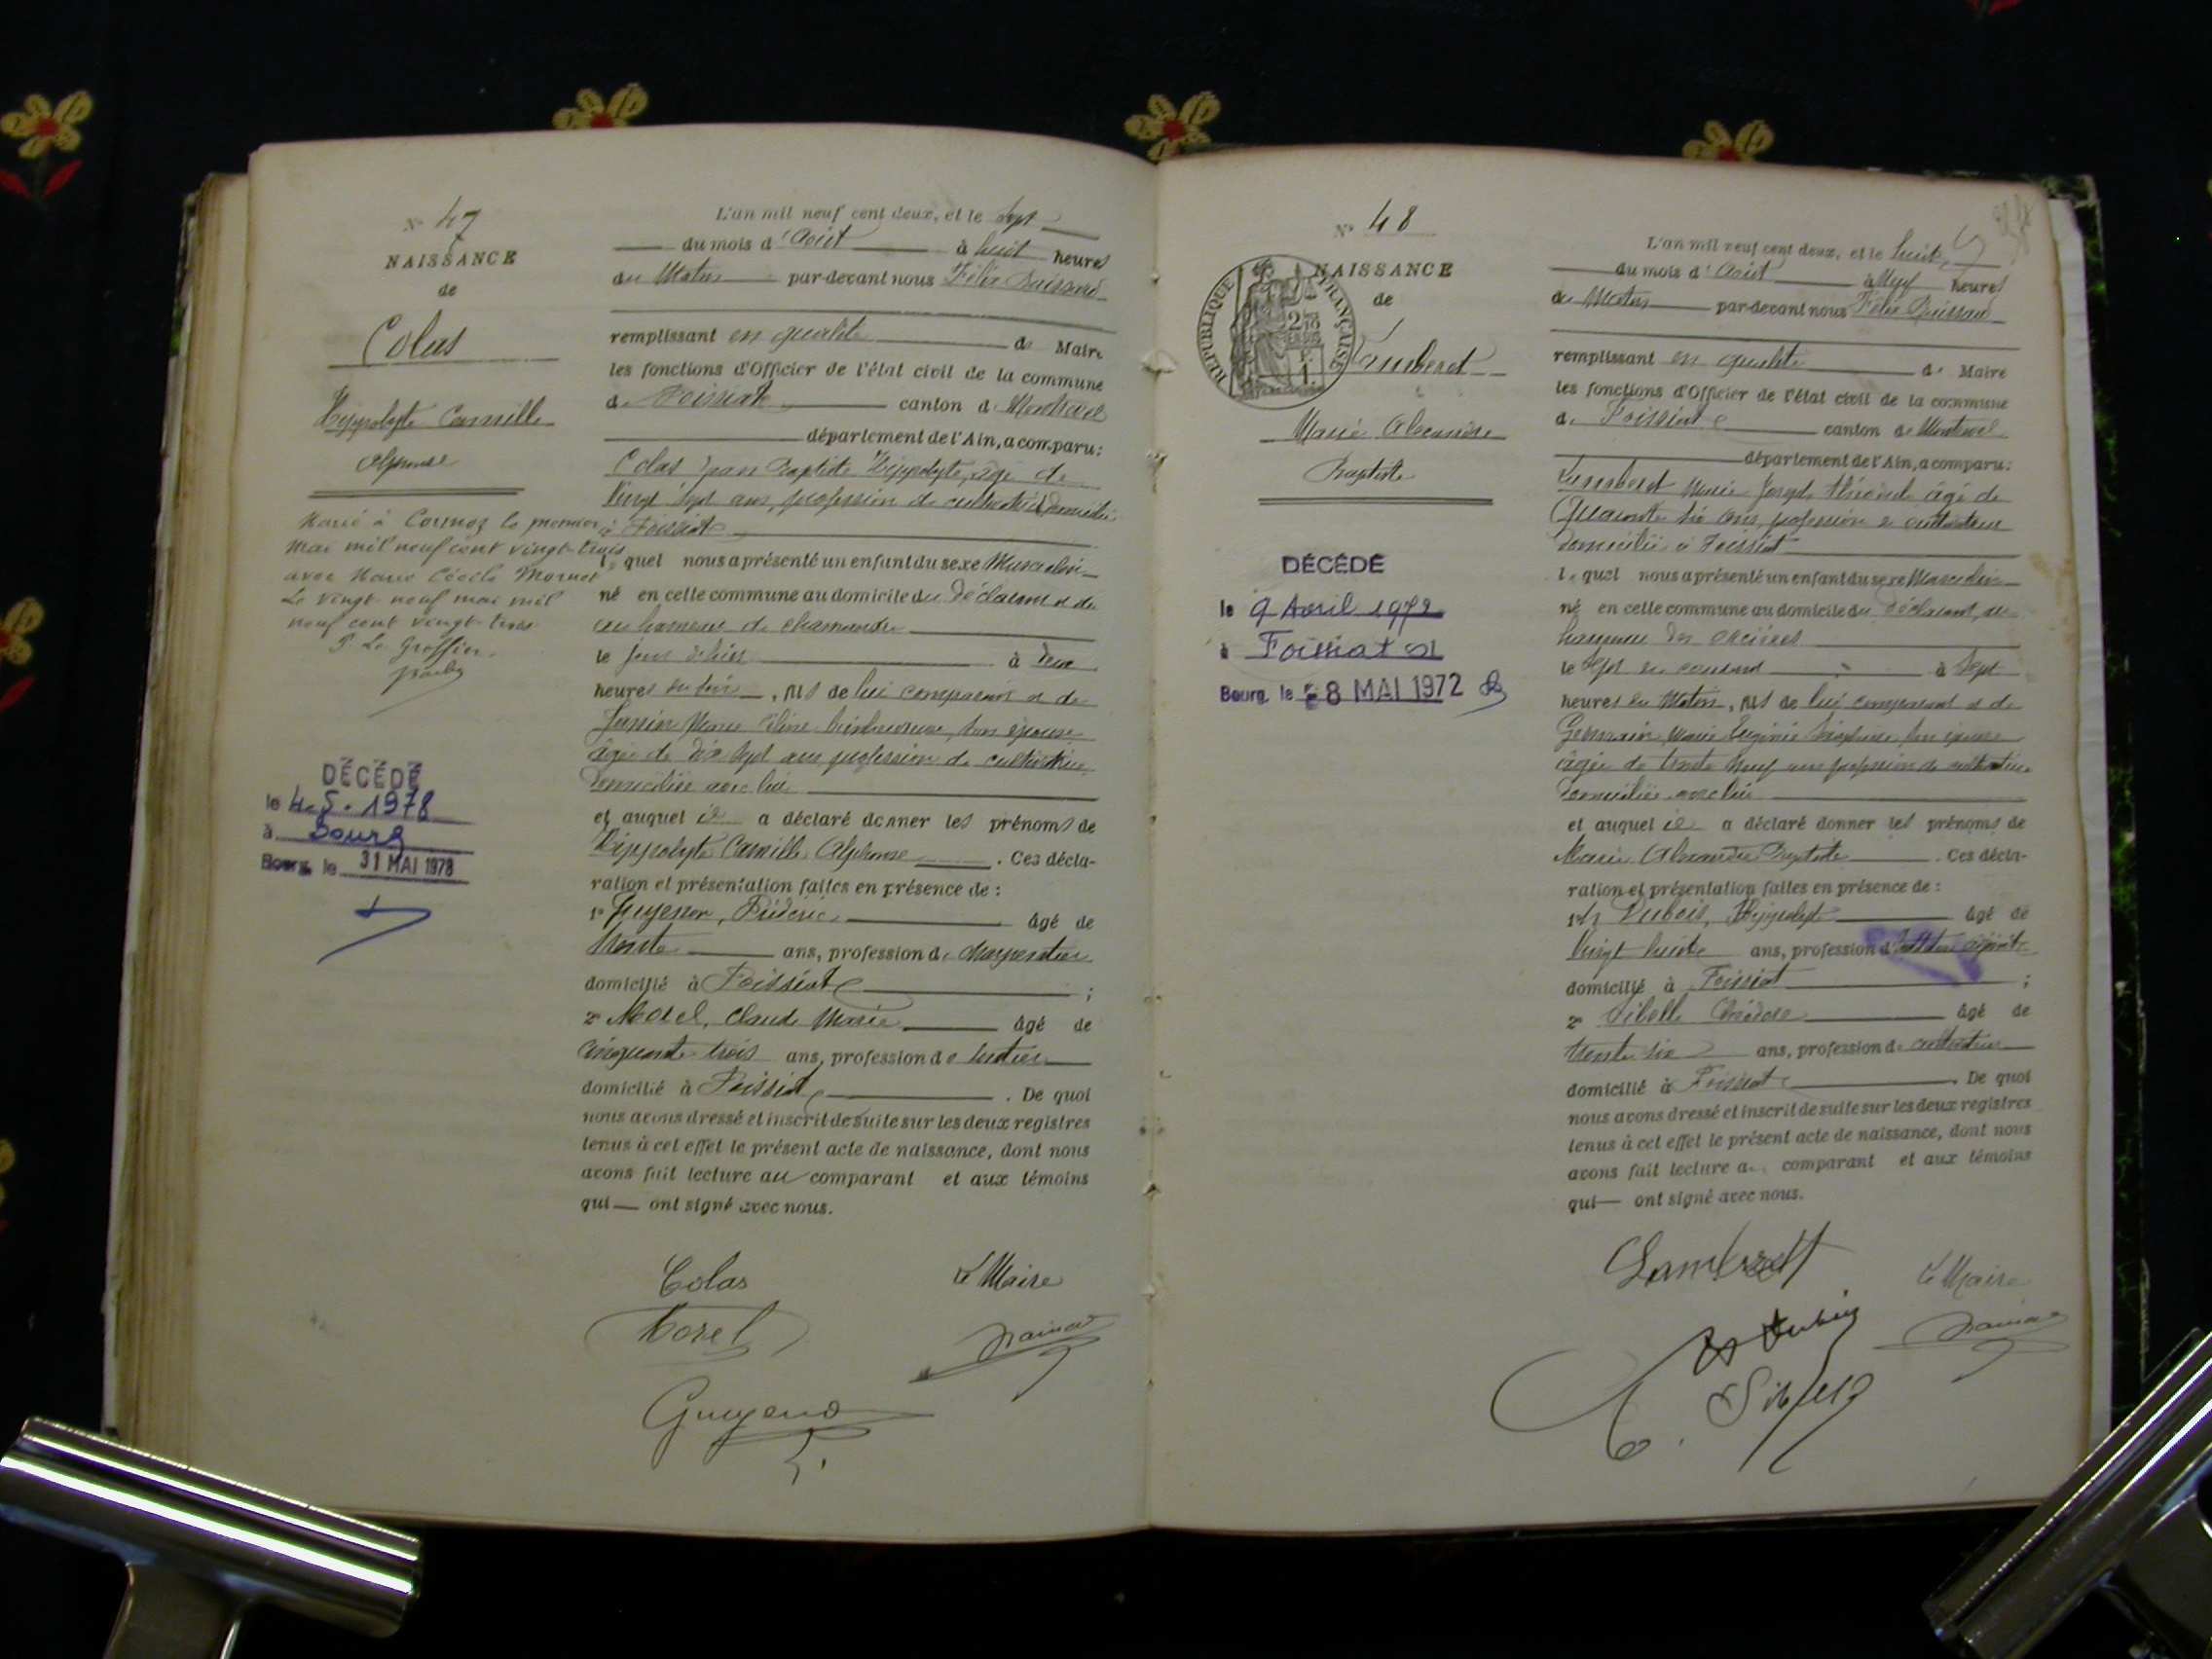 N° 47
NAISSANCE
de
Colas
Hippolyte Camille
Alphonse
Marié à Cormoz le premier
mai mil neuf cent vingt-trois
avec Marie Cécile Mornet
Le vingt neuf mai mil
neuf cent vingt trois
P. Le Greffier
DÉCÉDÉ
le 4.5.1978
à Bourg
Bourg, le 31 MAI 1978
L'an mil neuf cent deux, et le Sept
du mois d'Août à huit heures
du Matin par-devant nous Félix
remplissant en qualité de Maire
les fonctions d'Officier de l'état civil de la commune
de Foissiat canton de Montrevel
département de l'Ain, a comparu:
Colas Jean Baptiste Hippolyte, âgé de
vingt sept ans, profession de cultivateur, domicilié
à Foissiat
lequel nous a présenté un enfant du sexe Masculin
né en cette commune au domicile du déclarant et de
au hameau de
le jour d'hier à deux
heures du soir, fils de lui comparant et de
Marie son épouse
âgée de dix sept ans profession de cultivatrice
domiciliée avec lui
et auquel il a déclaré donner les prénoms de
Hippolyte Camille Alphonse. Ces décla-
ration et présentation faites en présence de:
1° Guyenon, Frédéric âgé de
trente ans, profession de charpentier
domicilié à Foissiat;
2° Morel, Claude Marie âgé de
cinquante trois ans, profession de
domicilié à Foissiat. De quoi
nous avons dressé et inscrit de suite sur les deux registres
tenus à cet effet le présent acte de naissance, dont nous
avons fait lecture au comparant et aux témoins
qui ont signé avec nous.
Colas Le Maire
Morel
N° 48
NAISSANCE
de
RÉPUBLIQUE FRANÇAISE
Lambert
Marie Alexandre
Baptiste
DÉCÉDÉ
le 9 Avril 1972
à Foissiat
Bourg, le 8 MAI 1972
L'an mil neuf cent deux, et le huit
du mois d'Août à Neuf heures
du Matin par-devant nous Félix
remplissant en qualité de Maire
les fonctions d'Officier de l'état civil de la commune
de Foissiat canton de Montrevel
département de l'Ain, a comparu:
Lambert Marie Joseph âgé de
Quarante six ans, profession de cultivateur
domicilié à Foissiat
lequel nous a présenté un enfant du sexe Masculin
né en cette commune au domicile du déclarant, au
hameau des
le sept du courant à sept
heures du Matin, fils de lui comparant et de
Germain Marie Eugénie son épouse
âgée de trente neuf ans profession de cultivatrice
domiciliée avec lui
et auquel il a déclaré donner les prénoms de
Marie Alexandre Baptiste. Ces décla-
ration et présentation faites en présence de:
1° Dubois, Hippolyte âgé de
vingt huit ans, profession d'
domicilié à Foissiat;
2° Sibelle Théodore âgé de
trente six ans, profession de cultivateur
domicilié à Foissiat. De quoi
nous avons dressé et inscrit de suite sur les deux registres
tenus à cet effet le présent acte de naissance, dont nous
avons fait lecture au comparant et aux témoins
qui ont signé avec nous.
Lambert
Le Maire